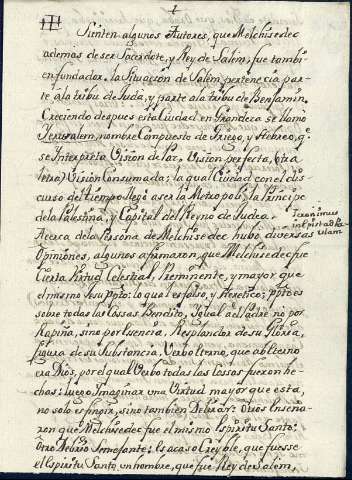 1
Sienten algunos Autores, que Melchisedec
ademas de ser Sacerdote, y Rey de Salem, fue tambi-
en fundador. la Situacion de Salem pertenecia par-
te á la tribu de Juda, y parte á la tribu de Benjamin.
Creciendo despues esta Ciudad en Grandeza se llamo
Jerusalem, nombre Compuesto de Griego, y Hebreo, q.
se Interpreta Vision de Paz, Vision perfecta, (otra
letra) Vision Consumada; la qual Ciudad con el dis-
curso del tiempo llegó a ser la Metropoli, la Principe
de la Palestina, y Capital del Reyno de Judea.
Jeronimus
in epist. ad
Acerca de la Persona de Melchisedec hubo diversas
Opiniones, algunos afirmaron, que Melchisedec fue
Cierta Virtud Celestial, Preminente, y mayor que
el mismo Jesu Xpto: lo qual es falso, y Heretico; Xpto es
sobre todas las Cossas Bendito, Igual al Padre no por
Rapiña, sino por Esencia, Resplandor de su Gloria,
figura de su Substancia, Verbo Eterno, que ab Eterno
era Dios, por el qual Verbo todas las Cossas fueron he-
chas: luego Imaginar una Virtud mayor que esta,
no solo es fingir, sino tambien Delirar: Otros Enseña-
ron que Melchisedec fue el mismo Espiritu Santo:
Otro Delirio Semejante; Es acaso Creyble, que fuesse
el Espiritu Santo un hombre, que fué Rey de Salem,